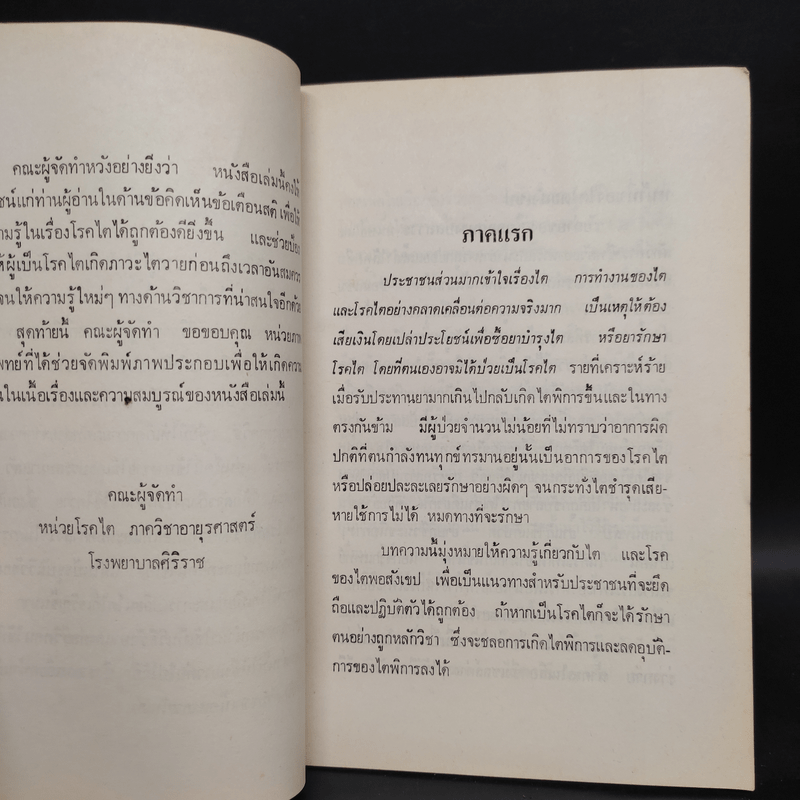 คณะผู้จัดทำหวังอย่างยิ่งว่า หนังสือเล่มนี้คงให้
ชน์แก่ท่านผู้อ่านในด้านข้อคิดเห็นข้อเตือนสติ เพื่อให้
ามรู้ในเรื่องโรคไตได้ถูกต้องดียิ่งขึ้น และช่วยป้อง
ให้ผู้เป็นโรคไตเกิดภาวะไตวายก่อนถึงเวลาอันสมควร
จนให้ความรู้ใหม่ๆ ทางด้านวิชาการที่น่าสนใจอีกด้วย
สุดท้ายนี้ คณะผู้จัดทำ ขอขอบคุณ หน่วยภาพ
พทย์ที่ได้ช่วยจัดพิมพ์ภาพประกอบเพื่อให้เกิดความ
นในเนื้อเรื่องและความสมบูรณ์ของหนังสือเล่มนี้
คณะผู้จัดทำ
หน่วยโรคไต ภาควิชาอายุรศาสตร์
โรงพยาบาลศิริราช
ภาคแรก
ประชาชนส่วนมากเข้าใจเรื่องไต การทำงานของไต
และโรคไตอย่างคลาดเคลื่อนต่อความจริงมาก เป็นเหตุให้ต้อง
เสียเงินโดยเปล่าประโยชน์เพื่อซื้อยาบำรุงไต หรือยารักษา
โรคไต โดยที่ตนเองอาจมิได้ป่วยเป็นโรคไต รายที่เคราะห์ร้าย
เมื่อรับประทานยามากเกินไปกลับเกิดไตพิการขึ้นและในทาง
ตรงกันข้าม มีผู้ป่วยจำนวนไม่น้อยที่ไม่ทราบว่าอาการผิด
ปกติที่ตนกำลังทนทุกข์ทรมานอยู่นั้นเป็นอาการของโรคไต
หรือปล่อยปละละเลยรักษาอย่างผิดๆ จนกระทั่งไตชำรุดเสีย-
หายใช้การไม่ได้ หมดทางที่จะรักษา
บทความนี้มุ่งหมายให้ความรู้เกี่ยวกับไต และโรค
ของไตพอสังเขป เพื่อเป็นแนวทางสำหรับประชาชนที่จะยึด
ถือและปฏิบัติตัวได้ถูกต้อง ถ้าหากเป็นโรคไตก็จะได้รักษา
ตนอย่างถูกหลักวิชา ซึ่งจะชลอการเกิดไตพิการและลดอุบัติ-
การของไตพิการลงได้